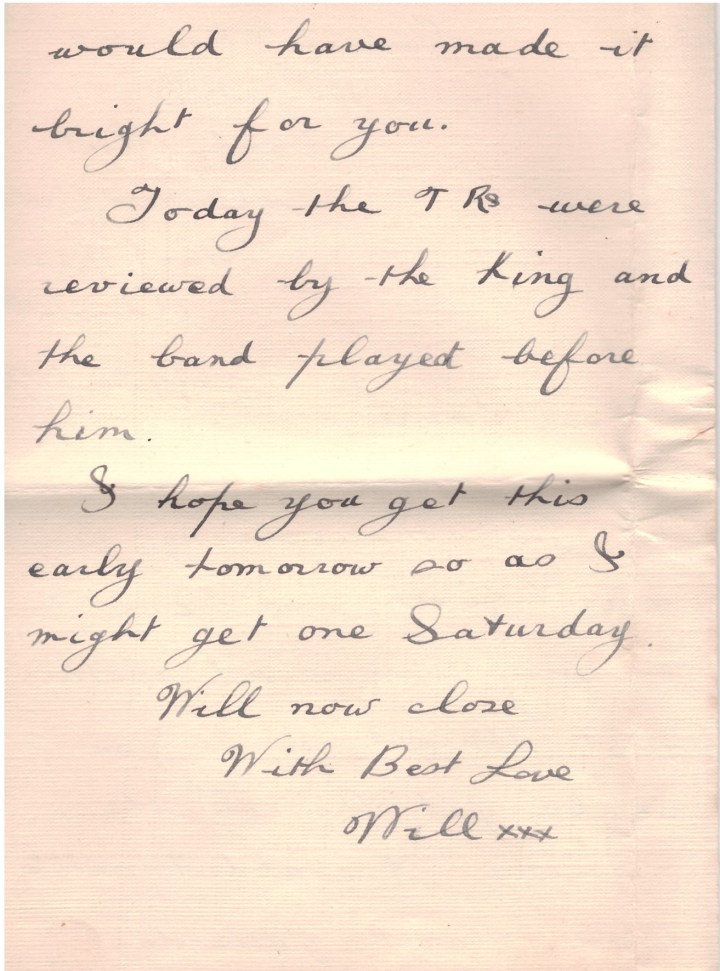 would have made it
bright for you.
Today the T Rs were
reviewed by the King and
the band played before
him.
I hope you get this
early tomorrow so as I
might get one Saturday.
Will now close
With Best Love
Will xxx